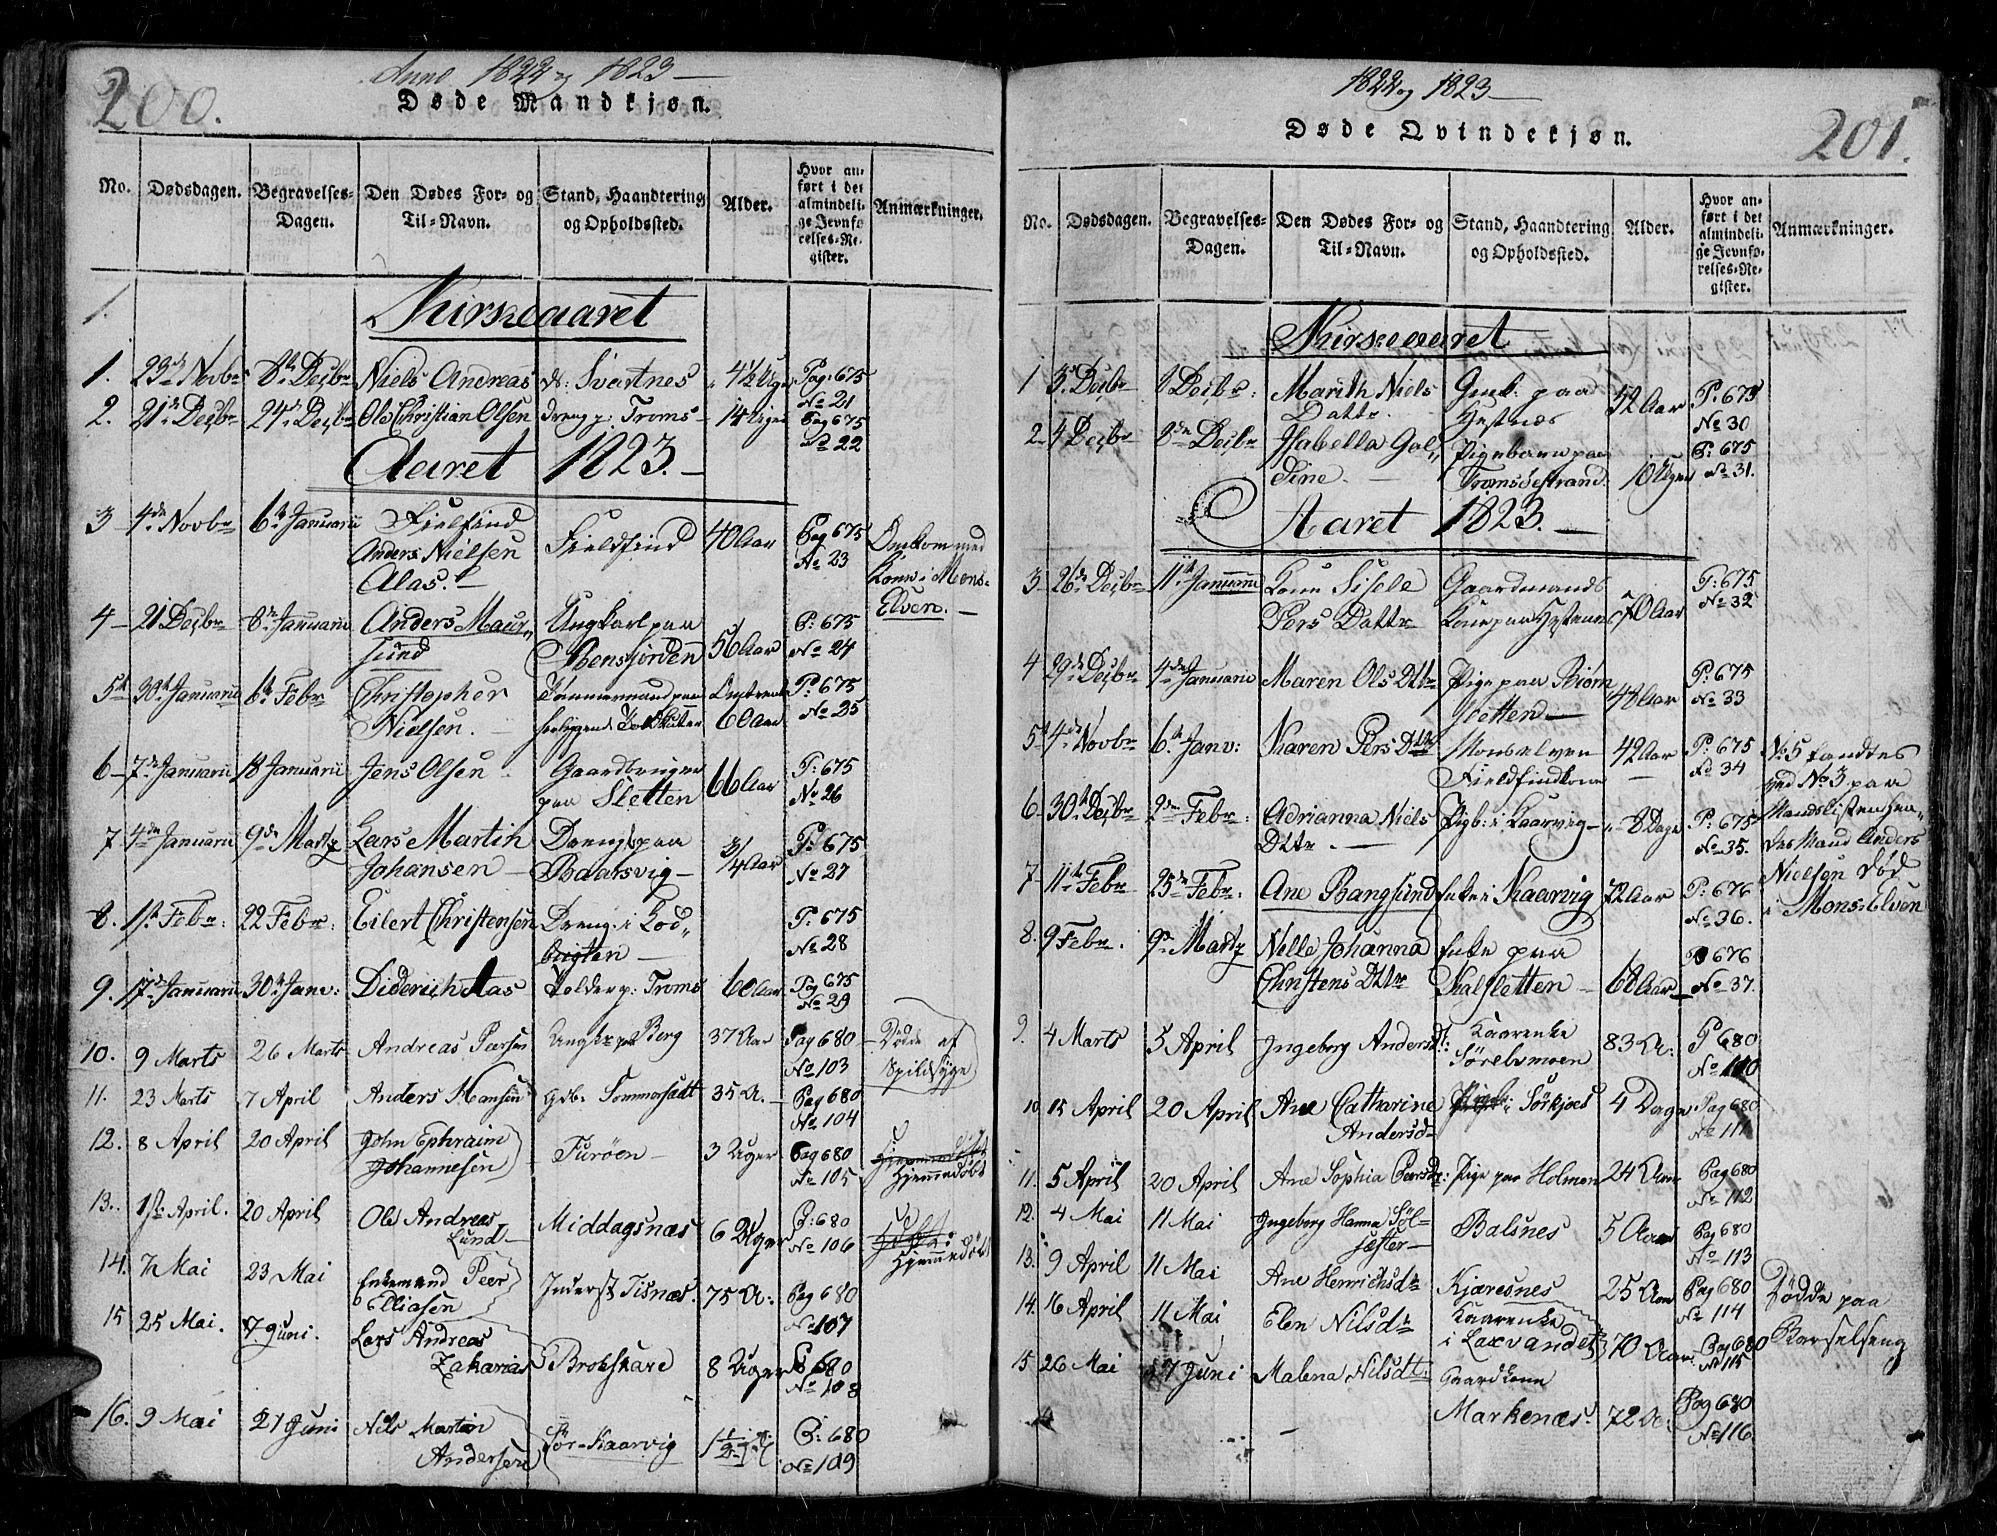 200.
Anno 1822 og 1823 —
Døde Mandkjøn.
No. Dødsdagen. Begravelses-Dagen. Den Dødes For- og Til-Navn. Stand, Haandtering og Opholdssted. Alder. Hvor anført i det almindelige Jevnførelses-Register. Anmærkninger.
Kirkeaaret
1. 23de Novbr 8de Decbr Niels Andreas d: Svartnes 4½ Uger Pag: 675 No 21
2. 21de Decbr 24de Decbr Ole Christian Olsen Dreng p: Troms 14 Uger Pag 675 No 22
Aaret 1823. —
3 4de Novbr 6te Januarii Fielfind Anders Nielsen Alas. — Fieldfind 40 Aar Pag 675 No 23 Omkom med Kone i Mons-Elven. —
4 21 Decbr 8de Januarii Anders Maursund Ungkarl paa Stensfjorden 56 Aar P: 675 No 24
5 30te Januarii 6te Febr Christopher Nielsen. 60 Aar P: 675 No 25
6 7de Januarii 18 Januarii Jens Olsen Gaardbruger paa Sletten 66 Aar P: 675 No 26
7 4de Januarii 9de Martz Lars Martin Johansen Drengb paa Baarsvig 3/4 Aar P: 675 No 27
8. 1ste Febr: 22 Febr: Eilert Christensen Dreng i 675 No 28
9. 17de Januarii 30te Janv: Diderich Aas p: Troms 60 Aar Pag 675 No 29
10. 9 Marts 26 Marts Andreas Peersen Ungkr paa Berg 37 Aar Pag 680 No 103 Døde af Spildsyge
11. 23 Marts 7 April Anders Hansen Gdb. Sommersædt 35 A. Pag 680 No 104
12. 8 April 20 April John Ephraim Johannesen Turöen 3 Uger Pag 680 No 105 Hjemmedøbt
13. 1ste April. 20 April Ole Andreas Lund Middagsnæs 6 Uger P: 680 No 106 Hjemmedøbt
14. 7 Mai 23 Mai Enkemand Peer Elliasen Inderst Tisnæs. 75 A: Pag 680 No 107
15 25 Mai. 7 Juni. Lars Andreas Zakarias Brokskare 8 Uger P 680 No 108
16. 9 Mai 21 Juni Nils Martin Andersen Sör-Kaarvig 1½ P: 680 No 109
201.
1822 og 1823 —
Døde Qvindekjøn.
No. Dødsdagen. Begravelses-Dagen. Den Dødes For- og Til-Navn. Stand, Haandtering og Opholdssted. Alder. Hvor anført i det almindelige Jevnførelses-Register. Anmærkninger.
Kirkeaaret
1 3de Decbr 8 Decbr: Marith Niels Dattr. Gmk: paa Hestnæs 52 Aar P: 675 No 30
2 4 Decbr 8de Decbr Isabella Galdine. — Pigebarn paa Tromsöestrand. 10 Uger P: 675 No 31.
Aaret 1823. —
3 26de Decbr 11te Januarii Kone Sisele Pers Dattr Gaardmands Kone paa Hestnes 70 Aar P: 675 No 32
4 29de Decbr 4de Januarii Maren Ols Dttr Pige paa Biørnsletten — 42 Aar P: 675 No 33
5 4de Novbr 6te Janv: Karen Pers Dttr Monselven Fieldfindkone 42 Aar P: 675 No 34 No 5 fandtes ved No 3 paa Mandslisten hendes Mand Anders Nielsen død i Mons-Elven
6 30te Decbr 2den Febr: Adrianna Niels Dttr. — Pigb: i Kaarvig — 8 Dage P: 675 No 35.
7 11te Febr 25de Febr: Ane Bangsund Enke i Kaarvig 72 Aar P: 676 No 36.
8. 9 Febr. 9de Martz Nelle Johanna Christens Dttr Enke paa Kalsletten — 60 Aar P 676 No 37.
9. 4 Marts 5 April Ingeborg Andersd: Kaarenke Sörelvmoen 83 A: P 680 No 110
10 15 April 20 April Ane Catharine Andersdr Sörkjos 4 Dage Pag 680 No 111
11. 5 April 20 April Ane Sophia Peersdr: Pige paa Holmen 24 Aar Pag 680 No 112
12. 4 Mai 11 Mai Ingeborg Hanna Sölfæster — Balsnes 5 Aar Pag 680 No 113
13. 9 April 11 Mai Ane Henrichsdr Kjæresnes 25 Aar Pag 680 No 114 Dødde paa Barselseng
14. 16 April 11 Mai Elen Nilsdr Kaarenke i Laxvandet 70 Aar. Pag 680 No 115
15 26 Mai 7 Juni Malena Nilsdtr. Gaardkone Markenæs. 72 A. Pag 680 No 116